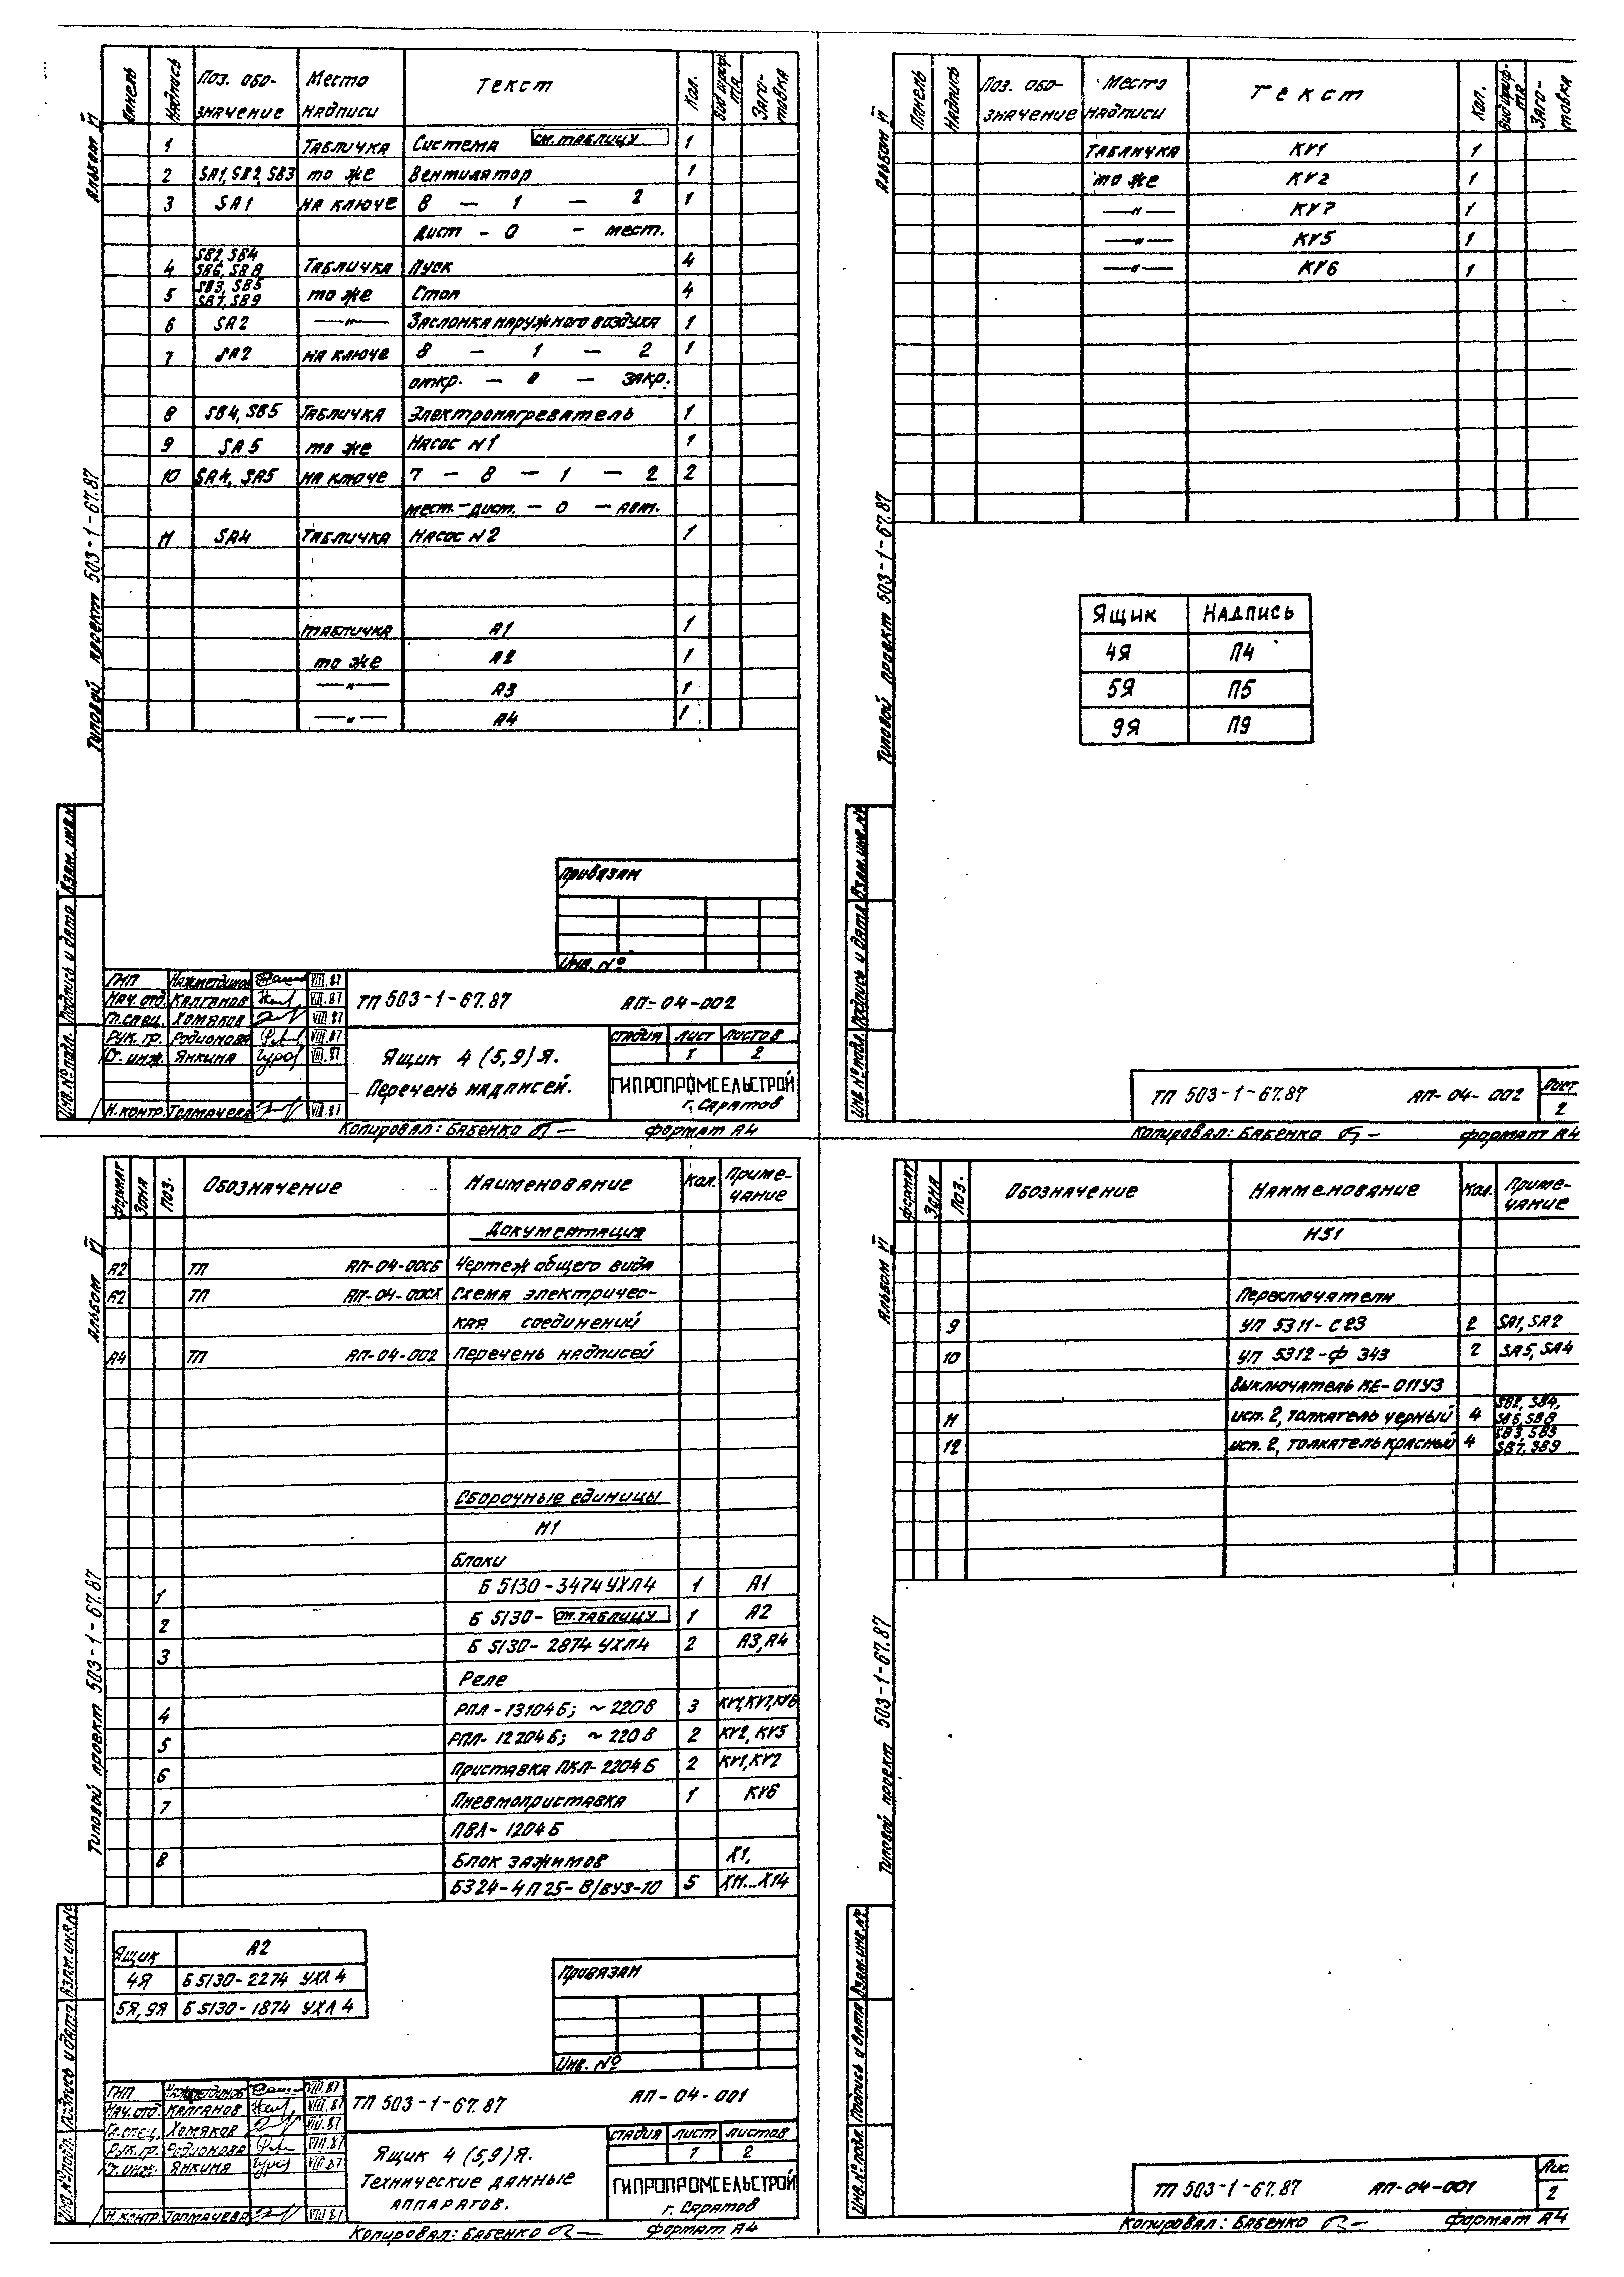 Альбом VI
Типовой проект 503-1-67.87
Панель | Надпись | Поз. обозначение | Место надписи | Текст | Кол. | Вид шрифта | Заготовка
1 | Табличка | Система см. таблицу | 1
2 | SA1, SB2, SB3 | то же | Вентилятор | 1
3 | SA1 | на ключе | 8 — 1 — 2 | 1
дист - 0 - мест.
4 | SB2, SB4 SB6, SB8 | Табличка | Пуск | 4
5 | SB3, SB5 SB7, SB9 | то же | Стоп | 4
6 | SA2 | —"— | Заслонка наружного воздуха | 1
7 | SA2 | на ключе | 8 — 1 — 2 | 1
откр. — 0 — закр.
8 | SB4, SB5 | Табличка | Электронагреватель | 1
9 | SA5 | то же | Насос N1 | 1
10 | SA4, SA5 | на ключе | 7 — 8 — 1 — 2 | 2
мест.-дист. - 0 - авт.
11 | SA4 | Табличка | Насос N2 | 1
табличка | А1 | 1
то же | А2 | 1
—"— | А3 | 1
—"— | А4 | 1
Привязан
Инв. №
Инв. № подл. | Подпись и дата | Взам. инв. №
ГИП | Нажметдинов | VIII.87
Нач. отд. | Калганов | VIII.87
Гл. спец. | Хомяков | VIII.87
Рук. гр. | Родионова | VIII.87
Ст. инж. | Янкина | VIII.87
Н. контр. | Толмачева | VIII.87
ТП 503-1-67.87 АП-04-002
Ящик 4 (5,9) Я.
Перечень надписей.
стадия | лист | листов
1 | 2
ГИПРОПРОМСЕЛЬСТРОЙ
г. Саратов
Копировал: Бабенко
формат А4
Альбом VI
Типовой проект 503-1-67.87
Панель | Надпись | Поз. обозначение | Место надписи | Текст | Кол. | Вид шрифта | Заготовка
Табличка | KV1 | 1
то же | KV2 | 1
—"— | KV7 | 1
—"— | KV5 | 1
—"— | KV6 | 1
Ящик | Надпись
4Я | П4
5Я | П5
9Я | П9
Инв. № подл. | Подпись и дата | Взам. инв. №
ТП 503-1-67.87 АП-04-002
Лист
2
Копировал: Бабенко
формат А4
Альбом VI
Типовой проект 503-1-67.87
Формат | Зона | Поз. | Обозначение | Наименование | Кол. | Примечание
Документация
А2 | ТП АП-04-00СБ | Чертеж общего вида
А2 | ТП АП-04-00СХ | Схема электричес-
кая соединений
А4 | ТП АП-04-002 | Перечень надписей
Сборочные единицы
Н1
Блоки
1 | Б 5130-3474 УХЛ4 | 1 | А1
2 | Б 5130- см. таблицу | 1 | А2
3 | Б 5130-2874 УХЛ4 | 2 | А3, А4
Реле
4 | РПЛ-13104Б; ~220В | 3 | KV1, KV7, KV6
5 | РПЛ-12204Б; ~220В | 2 | KV2, KV5
6 | Приставка ПКЛ-2204Б | 2 | KV1, KV2
7 | Пневмоприставка | 1 | KV6
ПВЛ-1204Б
8 | Блок зажимов | Х1,
БЗ24-4П25-В/ВУ3-10 | 5 | Х11...Х14
Ящик | А2
4Я | Б 5130-2274 УХЛ4
5Я, 9Я | Б 5130-1874 УХЛ4
Привязан
Инв. №
Инв. № подл. | Подпись и дата | Взам. инв. №
ГИП | Нажметдинов | VIII.87
Нач. отд. | Калганов | VIII.87
Гл. спец. | Хомяков | VIII.87
Рук. гр. | Родионова | VIII.87
Ст. инж. | Янкина | VIII.87
Н. контр. | Толмачева | VIII.87
ТП 503-1-67.87 АП-04-001
Ящик 4 (5,9) Я.
Технические данные
аппаратов.
стадия | лист | листов
1 | 2
ГИПРОПРОМСЕЛЬСТРОЙ
г. Саратов
Копировал: Бабенко
формат А4
Альбом VI
Типовой проект 503-1-67.87
Формат | Зона | Поз. | Обозначение | Наименование | Кол. | Примечание
Н51
Переключатели
9 | УП 5311-С23 | 2 | SA1, SA2
10 | УП 5312-Ф 343 | 2 | SA5, SA4
Выключатель КЕ-011У3
11 | исп. 2, толкатель черный | 4 | SB2, SB4, SB6, SB8
12 | исп. 2, толкатель красный | 4 | SB3 SB5 SB7, SB9
Инв. № подл. | Подпись и дата | Взам. инв. №
ТП 503-1-67.87 АП-04-001
Лис
2
Копировал: Бабенко
формат А4